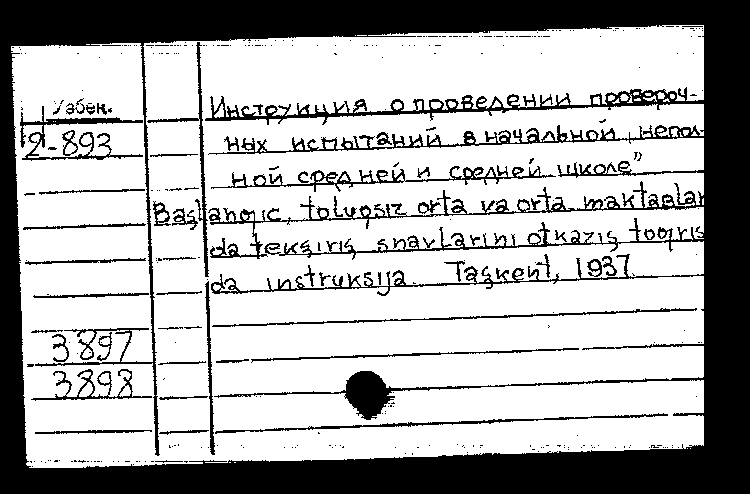 Узбек.
Инструкция о проведении провероч-
2-893
ных испытаний в начальной, непол-
ной средней и средней школе"
Başlanqic, tolıqsız orta va orta maktablar
da tekşiriş snavlarini otkaziş toqris
da instruksija. Taşkent, 1937
3897
3898